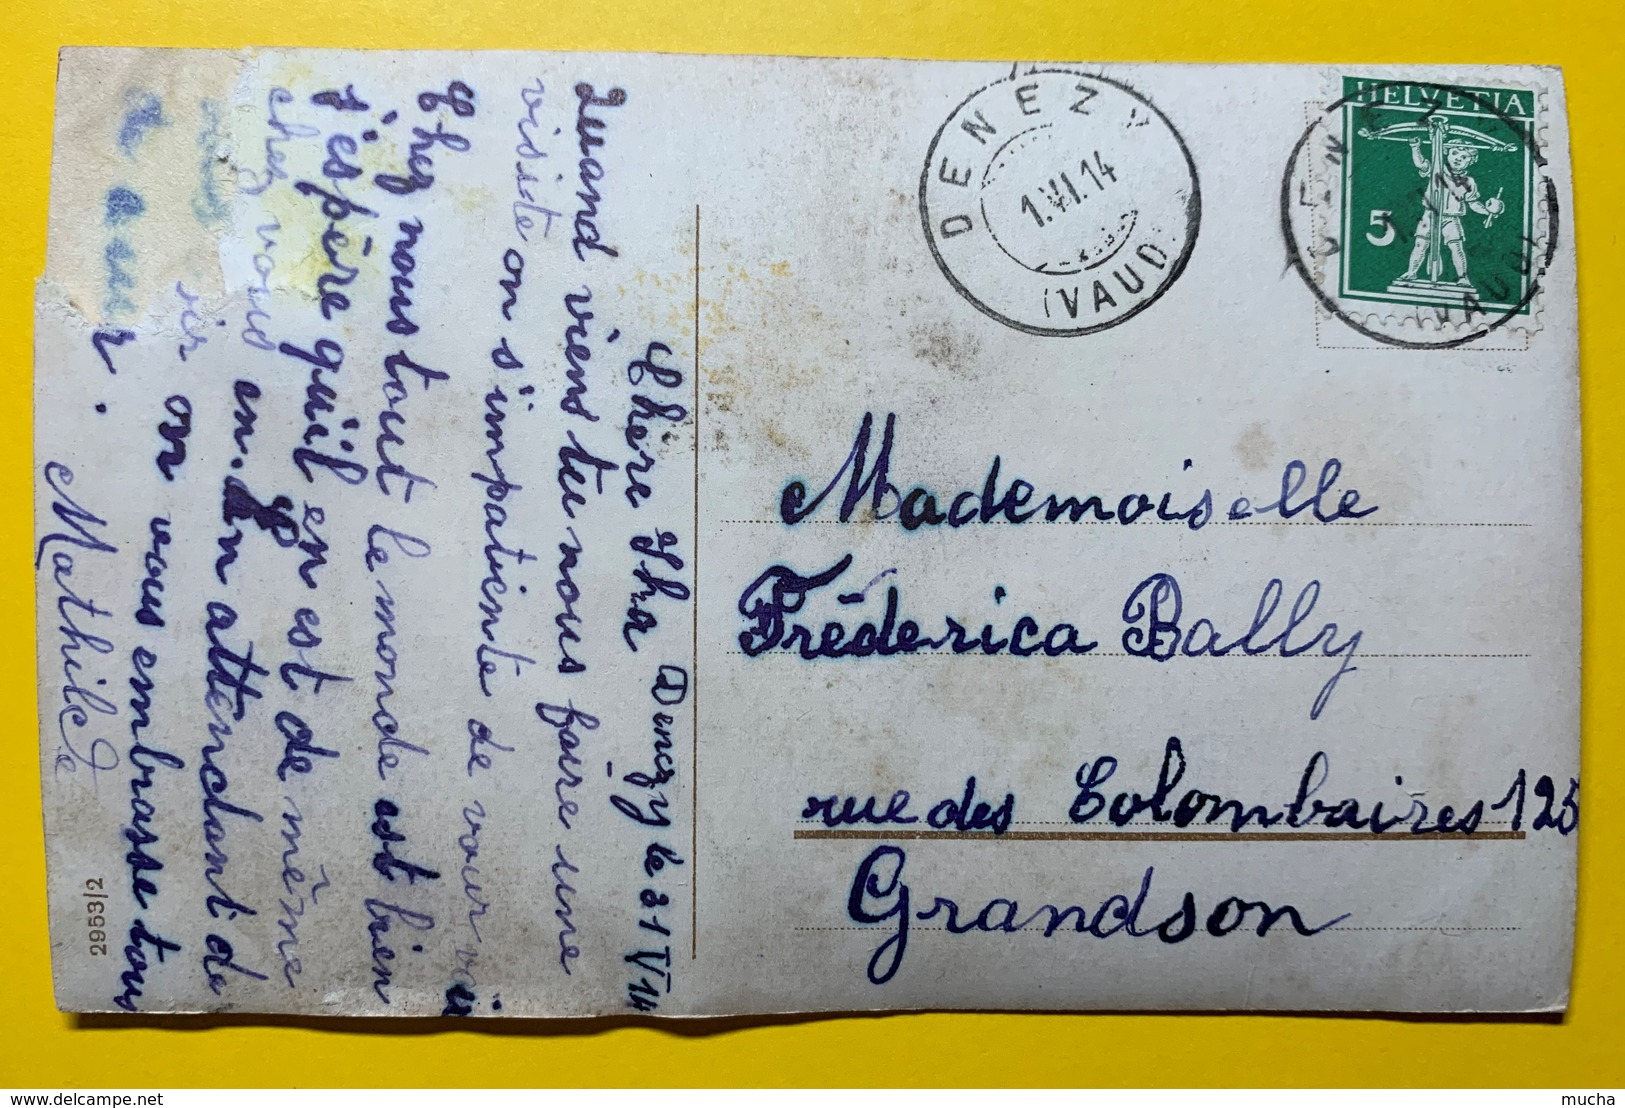 Denezy le 31 V 14
Chère
Quand viens tu nous faire une
visiste on s'impatiente de vour
Chez nous tout le monde est bien
j'éspère qu'il en est de même
chez vous en. attendant de
on vous embrasse tous
Mathilde
2953/2
DENEZY
1.VI.14
(VAUD)
HELVETIA
5
DENEZY
(VAUD)
Mademoiselle
Fréderica Bally
rue des Colombaires 125
Grandson
delcampe.net
mucha